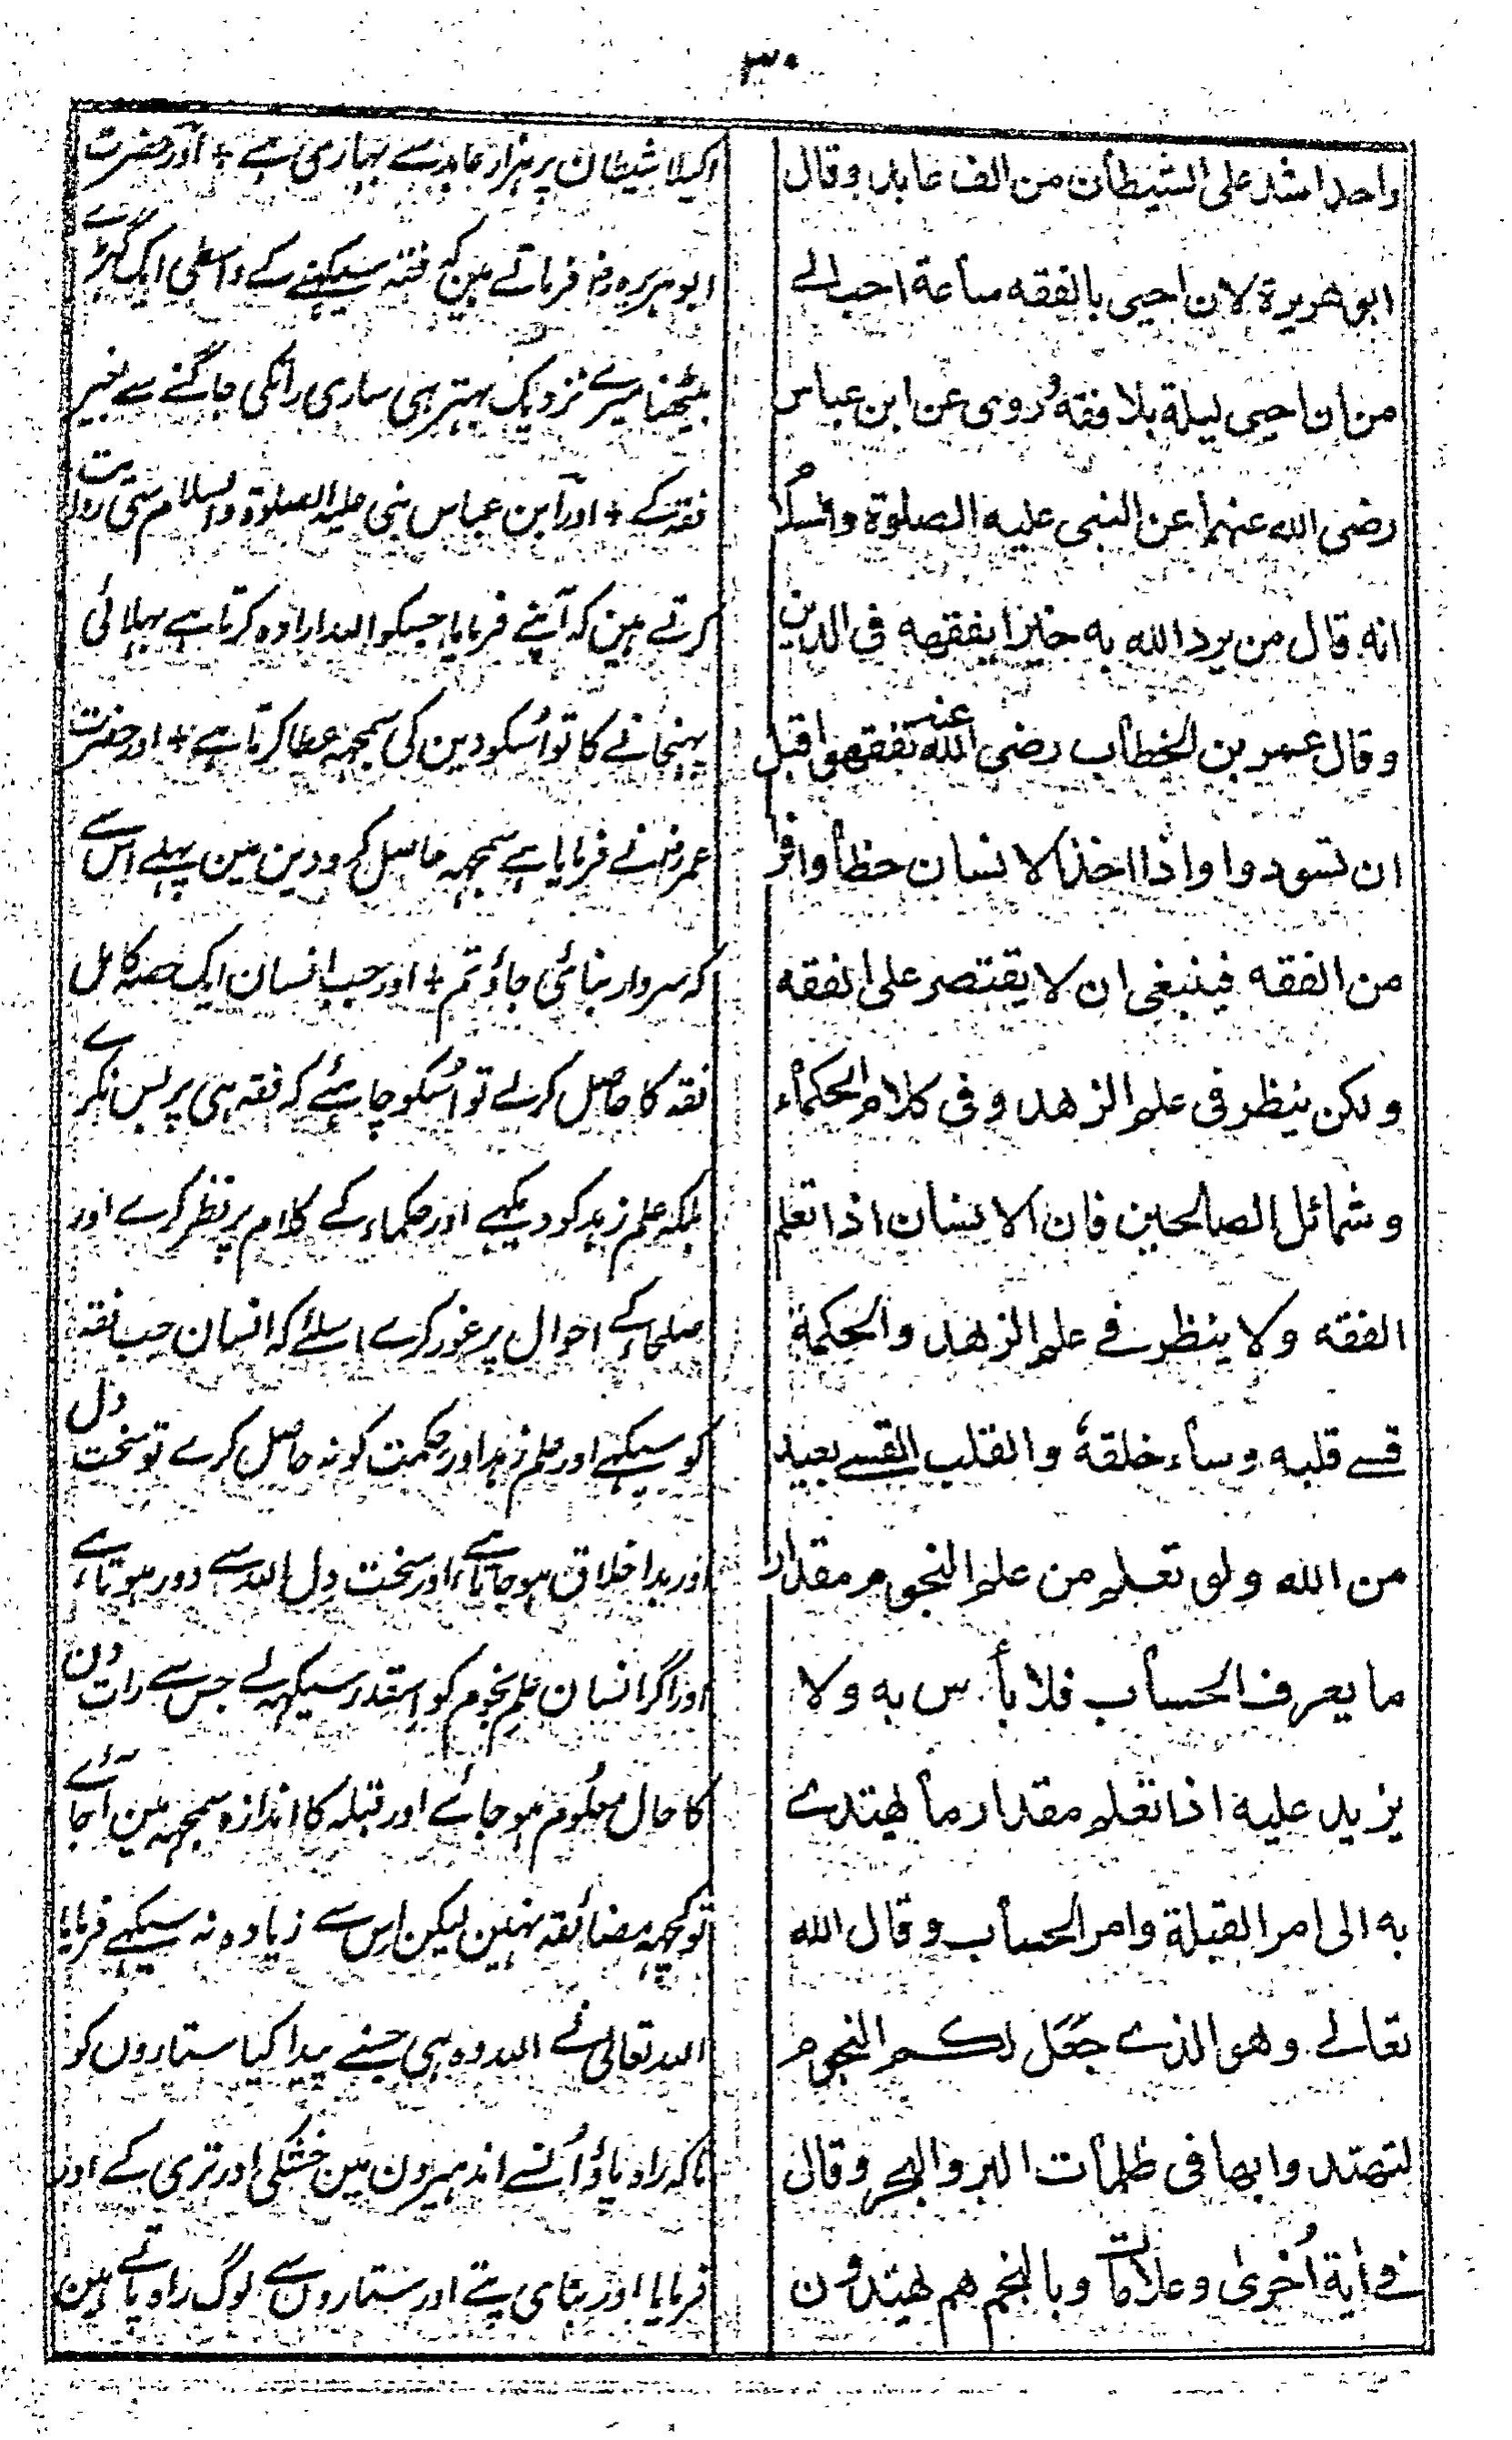 ٣٠
واحد اشد على الشيطان من الف عابد وقال
ابو هريرة لان احيى بالفقه ساعة احب الے
من ان احيى ليلة بلا فقه وروى عن ابن عباس
رضى الله عنهما عن النبى عليه الصلوة والسلام
انه قال من يرد الله به خيرا يفقهه فى الدين
وقال عمر بن الخطاب رضى الله عنه تفقهوا قبل
ان تسودوا واذا اخذ الانسان حظا وافرا
من الفقه فينبغى ان لا يقتصر على الفقه
ولكن ينظر فى علم الزهد وفى كلام الحكماء
وشمائل الصالحين فان الانسان اذا تعلم
الفقه ولا ينظر فے علم الزهد والحكمة
قسے قلبه وساء خلقهٗ والقلب القسے بعيد
من الله ولو تعلم من علم النجوم مقدار
ما يعرف الحساب فلا بأس به ولا
يزيد عليه اذا تعلم مقدار ما يهتدے
به الى امر القبلة وامر الحساب وقال الله
تعالے وهو الذے جَعَل لكم النجوم
لتهتدوا بها فى ظلمات البر والبحر وقال
فے اٰية اُخرىٰ وعلامات وبالنجم هم يهتدون
اکیلا شیطان پر ہزار عابد سے بہاری ہے + اور حضرت
ابو ہریرہ رضہ فرماتے ہین کہ فقہ سیکہنے کے واسطی ایک گہڑے
بیٹھنا میرے نزدیک بہتر ہی ساری رات کی جاگنے سے بغیر
فقہ کے + اور ابن عباس نبی علیہ الصلوۃ والسلام سی روایت
کرتے ہین کہ آپنے فرمایا جسکو اللہ ارادہ کرتا ہے بہلائی
پہنچانے کا تو اُسکو دین کی سمجہہ عطا کرتا ہے + اور حضرت
عمر رضہ نے فرمایا ہے سمجہہ حاصل کرو دین مین پہلے اس سے
کہ سردار بنائی جاؤ تم + اور جب انسان ایک حصہ کامل
فقہ کا حاصل کرلے تو اُسکو چاہئے کہ فقہ ہی پر بس نکرے
بلکہ علم زہد کو دیکہے اور حکماء کے کلام پر نظر کرے اور
صلحاء کے احوال پر غور کرے اسلئے کہ انسان جب فقہ
کو سیکہے اور علم زہد اور حکمت کو نہ حاصل کرے تو سخت دل
اور بد اخلاق ہو جاتا ہے اور سخت دل اللہ سے دور ہوتا ہے
اور اگر انسان علم نجوم کو اسقدر سیکہہ لے جس سے رات دن
کا حال معلوم ہو جائے اور قبلہ کا اندازہ سمجہہ مین آ جائے
تو کچہہ مضائقہ نہین لیکن اس سے زیادہ نہ سیکہے فرمایا
اللہ تعالیٰ نے اللہ وہ ہی جسنے پیدا کیا ستارون کو
تاکہ راہ پاؤ اُنسے اندہیرون مین خشکی اور تری کے اور
فرمایا اور بنای پتے اور ستارون سے لوگ راہ پاتے ہین